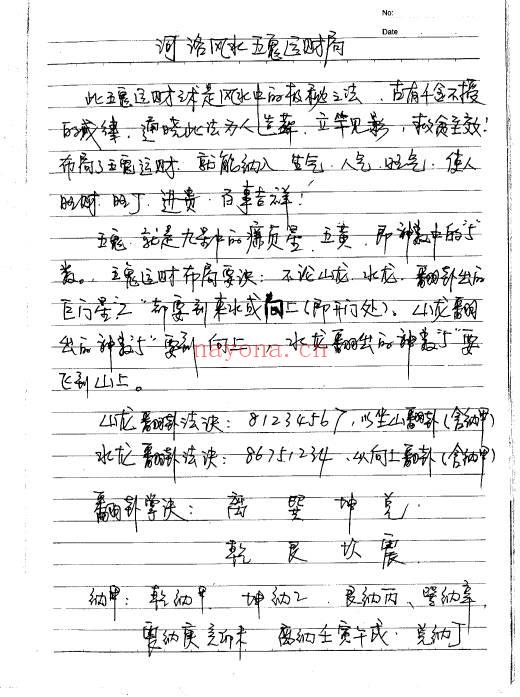 No:
Date
河洛风水五鬼运财局
此五鬼运财之术是风水中的极秘之法，古有千金不授
的戒律，通晓此法为人造葬，立竿见影，救贫至效！
布局了五鬼运财，就能纳入生气、人气、旺气，使人
旺财、旺丁、进贵、百事吉祥！
五鬼，就是九星中的廉贞星，五黄，即神数中的"5"
数。五鬼运财布局要决：不论山龙、水龙，翻卦出的
巨门星"2"都要到来水或向上（即开门处）。山龙翻
出的神数"5"要到向上，水龙翻出的神数"5"要
飞到山上。
nayona.cn
山龙翻卦法决：81234567，以坐山翻卦（含纳甲）
水龙翻卦法决：86751234，以向上翻卦（含纳甲）
翻卦掌决：离 巽 坤 兑
乾 艮 坎 震
纳甲：乾纳甲、坤纳乙、艮纳丙、巽纳辛、
震纳庚亥卯未 离纳壬寅午戌、兑纳丁